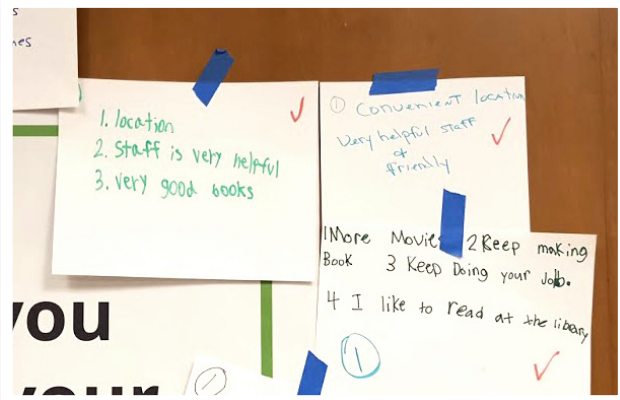 s
nes
1. location
2. Staff is very helpful
3. very good books
① Convenient location
Very helpful staff
&
friendly
1 More Movie 2 Keep making
Book 3 Keep Doing your Job.
4 I like to read at the library
①
you
your